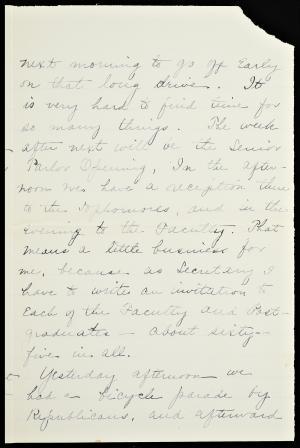 next morning to go off Early
on that long drive. It
is very hard to find time for
so many things. The week
after next will be the Senior
Parlor Opening, In the after-
noon we have a reception there
to the Sophomores, and in the
Evening to the Faculty. That
means a little business for
me, because as Secretary I
have to write an invitation to
Each of the Faculty and Post-
graduates - about sixty-
five in all.
Yesterday afternoon we
had a bicycle parade by
Republicans, and afterward